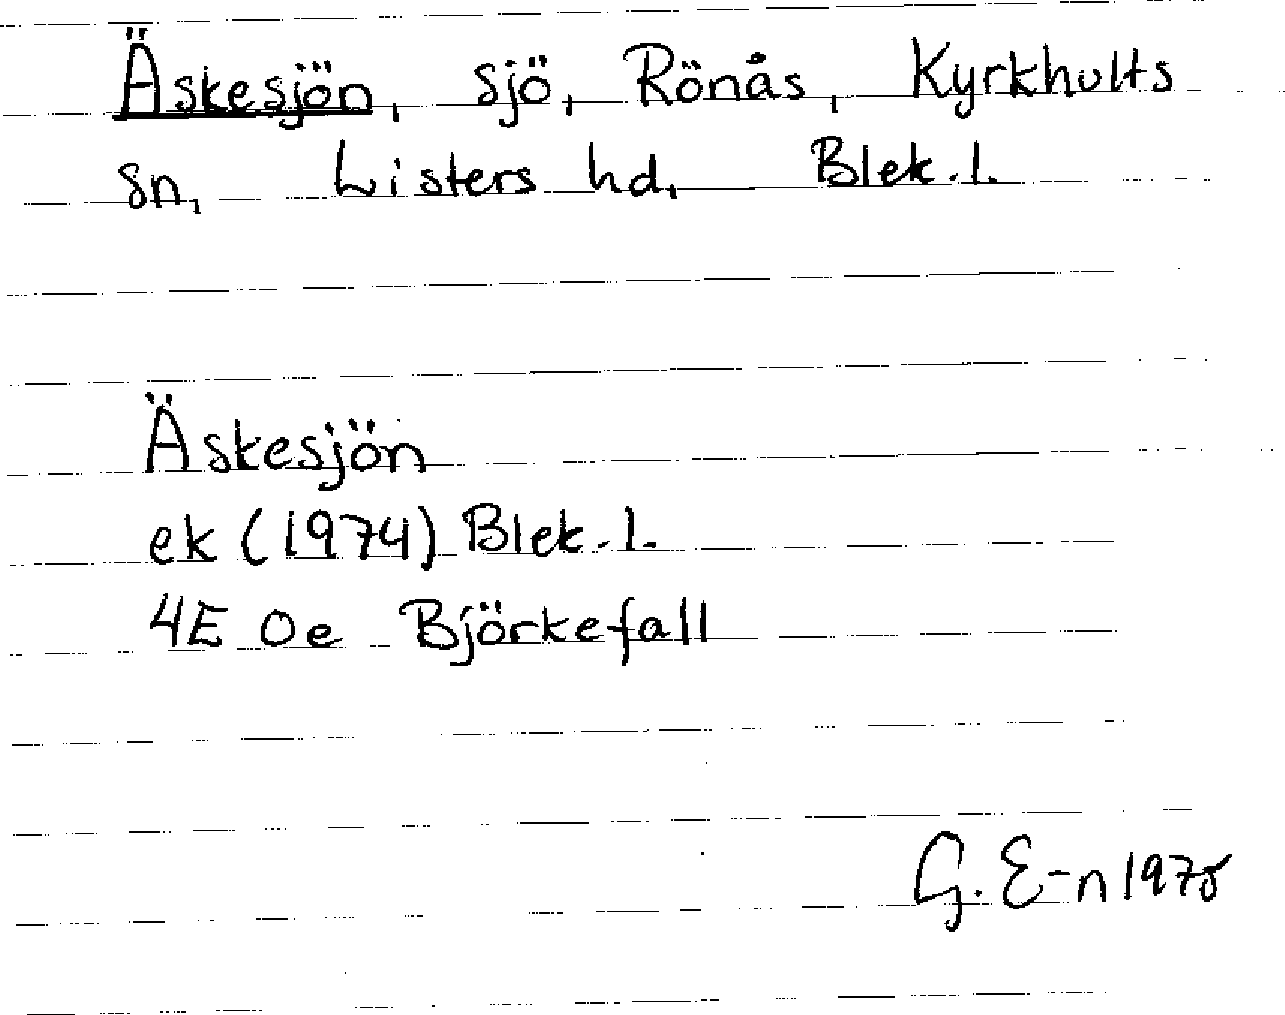 Äskesjön, sjö, Rönås, Kyrkhults
sn, Listers hd, Blek. l.
Äskesjön
ek (1974) Blek. l.
4E 0e Björkefall
G. E-n 1978